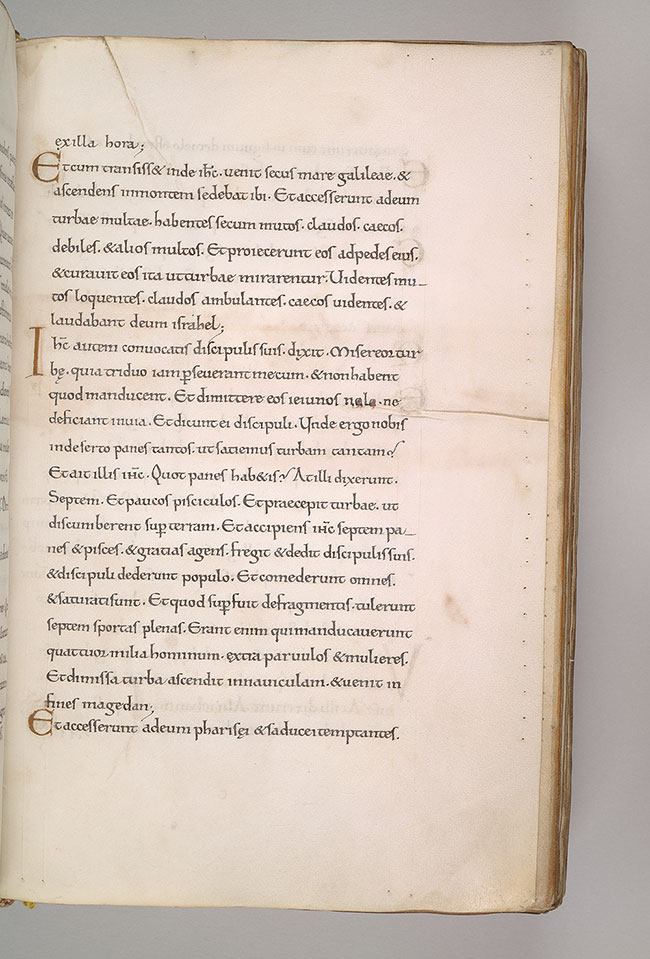 ex illa hora;
Et cum transiss& inde ihc. venit secus mare galileae. &
ascendens in montem sedebat ibi. Et accesserunt ad eum
turbae multae. habentes secum mutos. claudos. caecos.
debiles. & alios multos. Et proiecerunt eos ad pedes eius.
& curavit eos ita ut turbae mirarentur. Videntes mu-
tos loquentes. claudos ambulantes. caecos videntes. &
laudabant deum israhel;
Ihc autem convocatis discipulis suis. dixit. Misereor tur
bę. quia triduo iam pseverant mecum. & non habent
quod manducent. Et dimittere eos ieiunos nolo. ne
deficiant in via. Et dicunt ei discipuli. Unde ergo nobis
in deserto panes tantos. ut satiemus turbam tantam?
Et ait illis ihc. Quot panes hab&is? At illi dixerunt.
Septem. Et paucos pisciculos. Et praecepit turbae. ut
discumberent sup terram. Et accipiens ihc septem pa-
nes & pisces. & gratias agens. fregit & dedit discipulis suis.
& discipuli dederunt populo. Et comederunt omnes.
& saturati sunt. Et quod supfuit de fragmentis. tulerunt
septem sportas plenas. Erant enim qui manducaverunt
quattuor milia hominum. extra parvulos & mulieres.
Et dimissa turba ascendit in naviculam. & venit in
fines magedan;
Et accesserunt ad eum pharisęi & saducei temptantes.